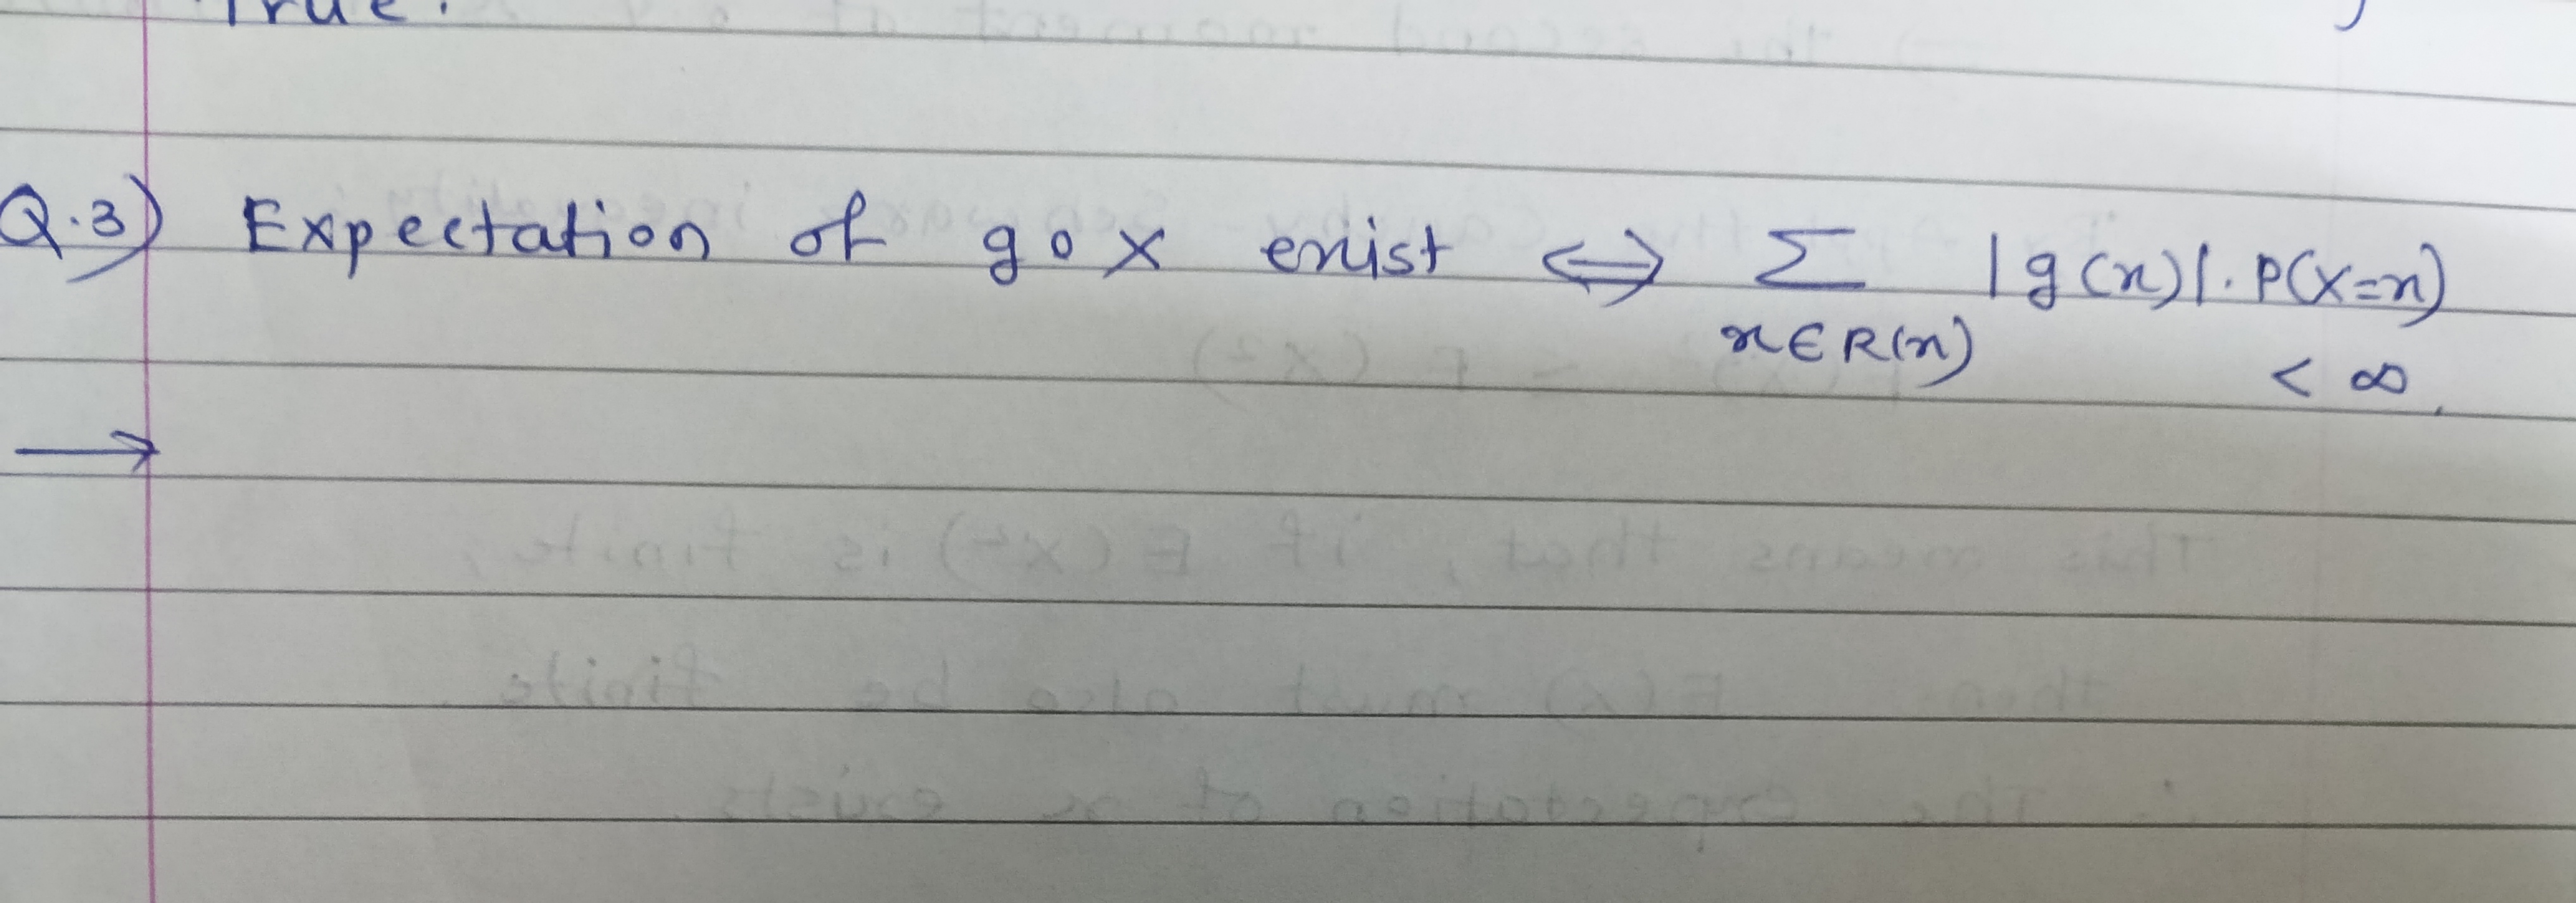 True.
Q.3) Expectation of g∘X exist ⇔ Σ |g(x)|. P(X=x)
x∈R(x) < ∞.
→